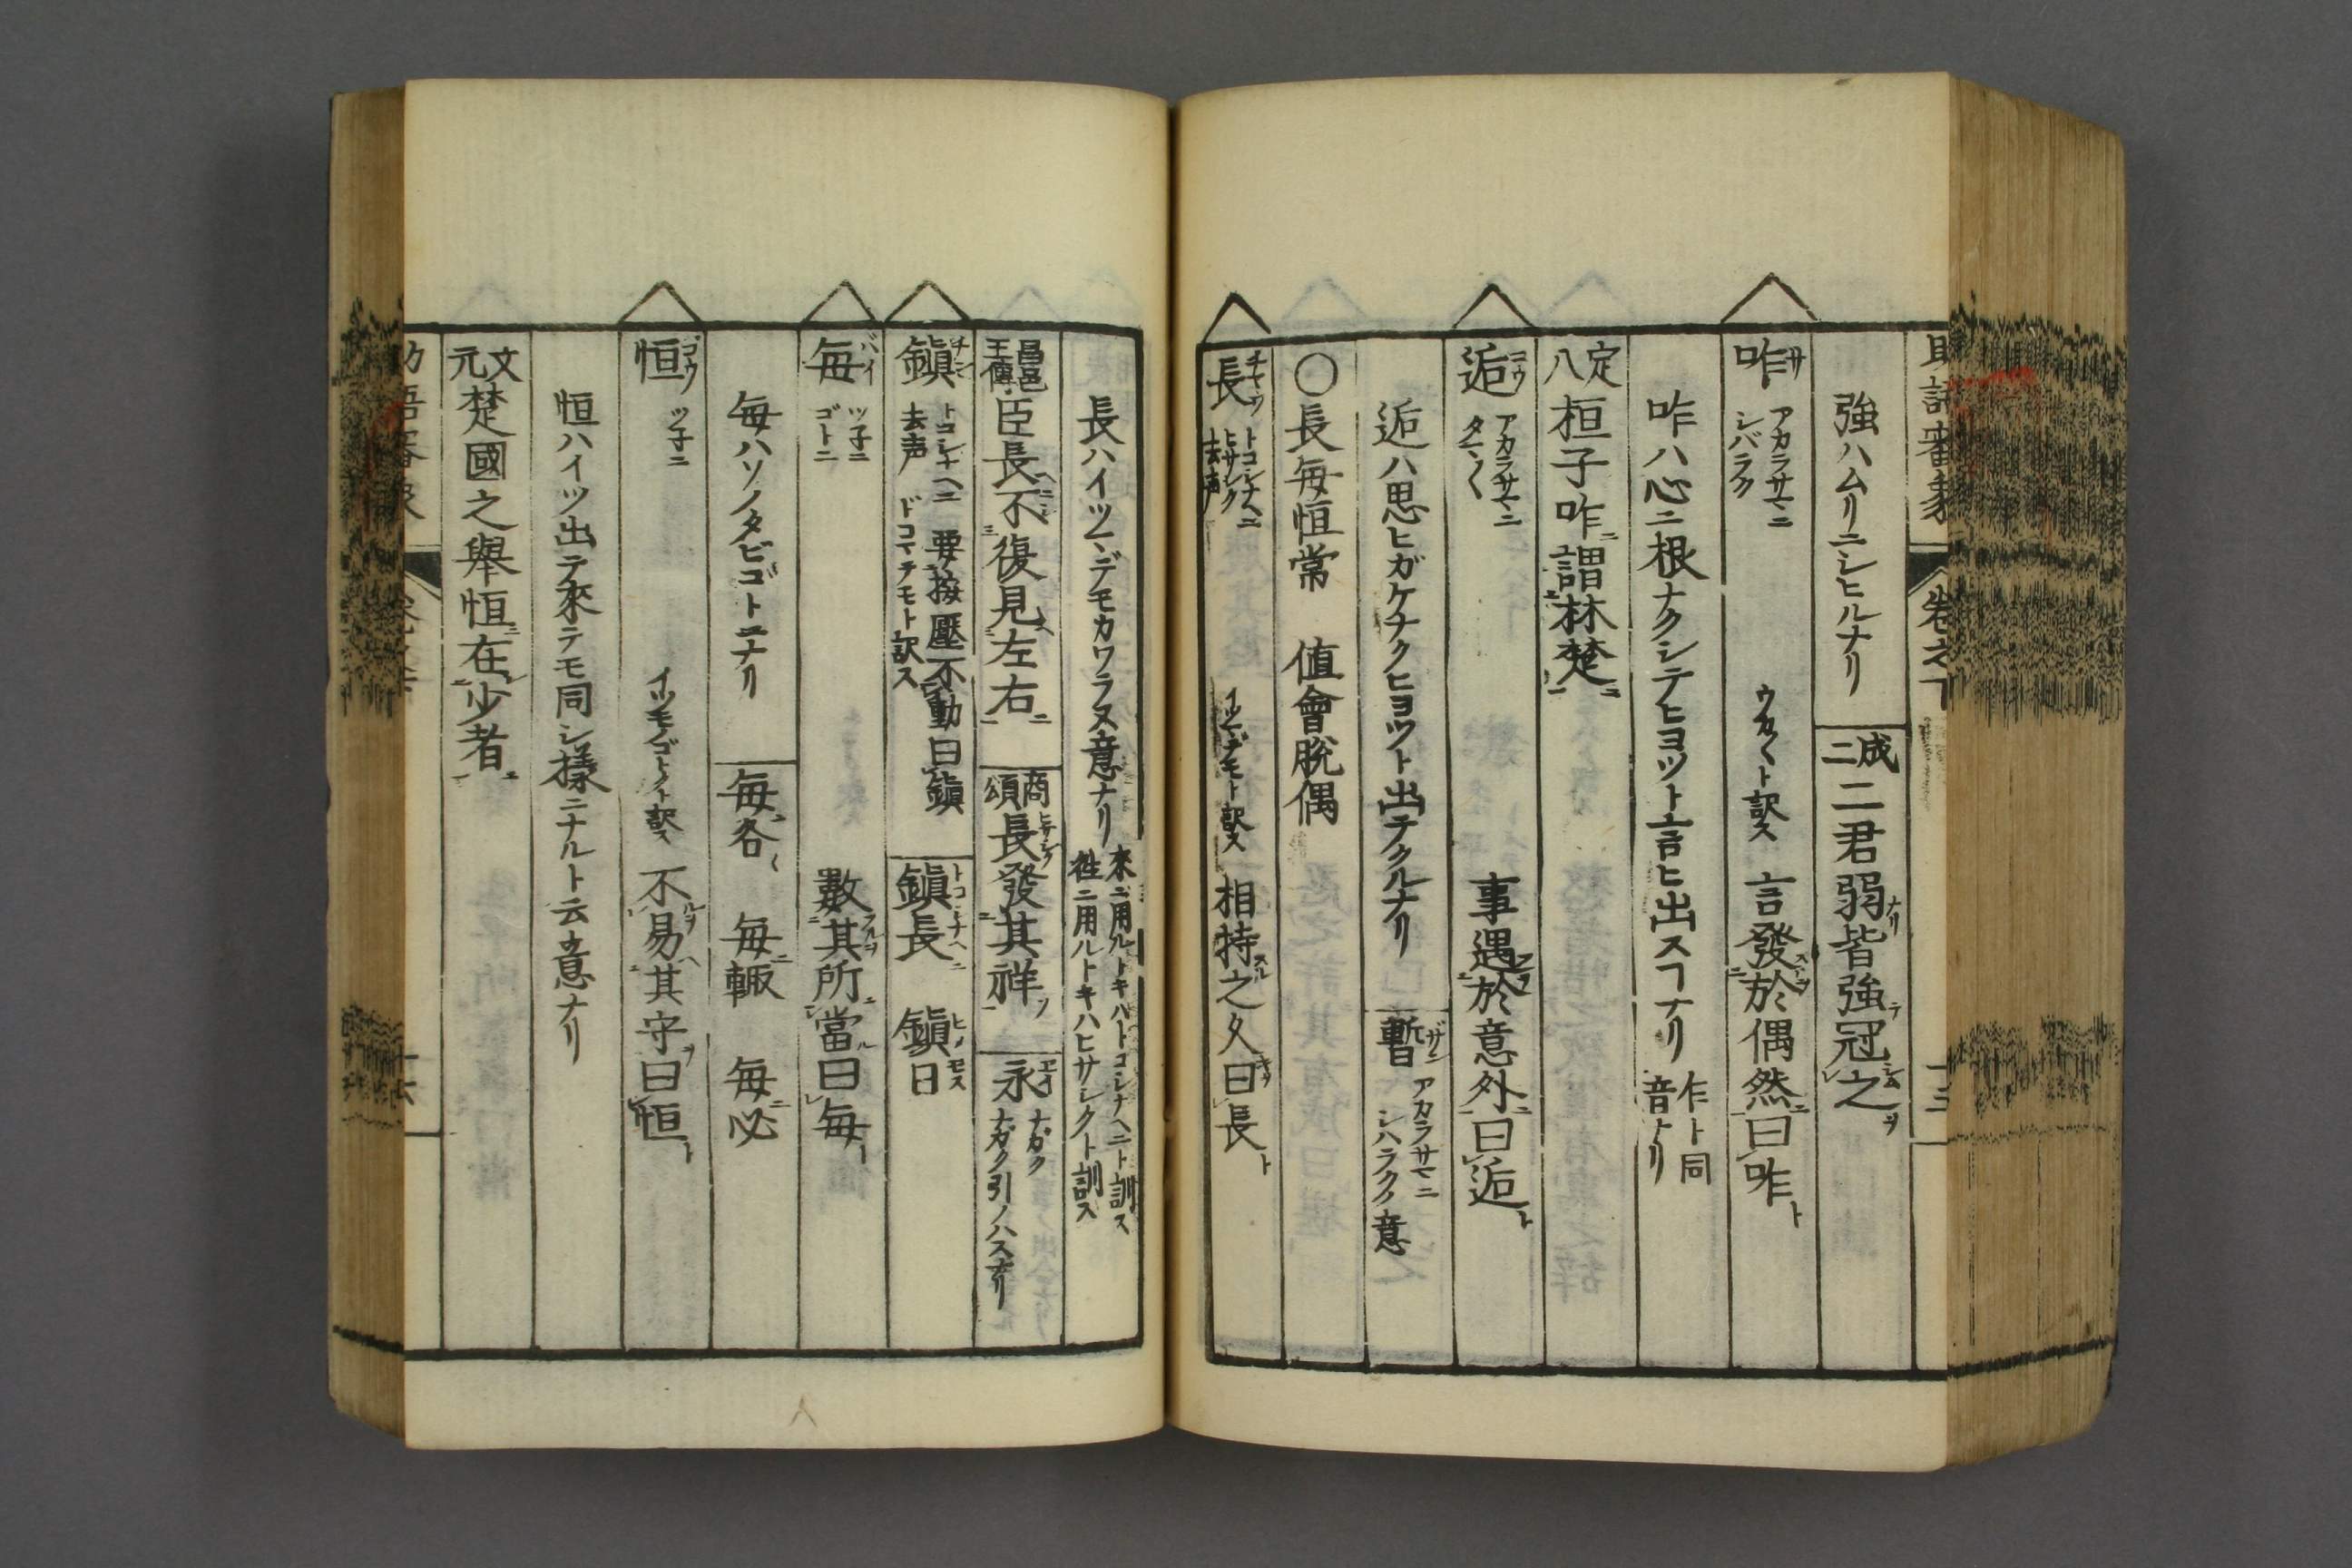 助語審象 卷之下 十三
強ハムリニシヒルナリ 成二 二君弱皆強冠之
咋 サ アカラサマニ シバラク ウカ〱ト訳ス 言發於偶然曰咋
咋ハ心ニ根ナクシテヒヨツト言ヒ出スヿナリ 作ト同音ナリ
定八 桓子咋謂林楚
逅 コウ アカラサマニ タマ〱 事遇於意外曰逅
逅ハ思ヒガケナクヒヨツト出テクルナリ 暫 ザン アカラサマニ シハラクノ意
○長毎恒常 値會脱偶
長 チヤウ トコシナヘニ ヒサシク 去声 イツマデモト訳ス 相持之久曰長
長ハイツマデモカワラヌ意ナリ 來ニ用ルトキハトコシナヘニト訓ス 往ニ用ルトキハヒサシクト訓ス
昌邑王傳 臣長不復見左右 商頌 長發其祥 永 ナガク ナガク引ノハスナリ
鎭 チン トコシナヘニ 去声 要按壓不動曰鎭 ドコマテモト訳ス 鎭長 トコシナヘニ 鎭日 ヒノモス
毎 バイ ツ子ニ ゴトニ 數其所當曰毎
毎ハソノタビゴトニナリ 毎各 毎輙 毎必
恒 コウ ツ子ニ イツモゴトノト訳ス 不易其守曰恒
恒ハイツ出テ來テモ同シ樣ニナルト云意ナリ
文元 楚國之舉恒在少者